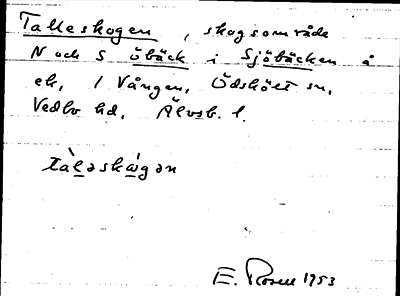 Talleskogen, skogsområde
N och S öbäck i Sjöbäcken å
ek, 1 Vången, Ödskölt sn,
Vedbo hd, Älvsb. l.
tàləskẁgən
E. Rosell 1953